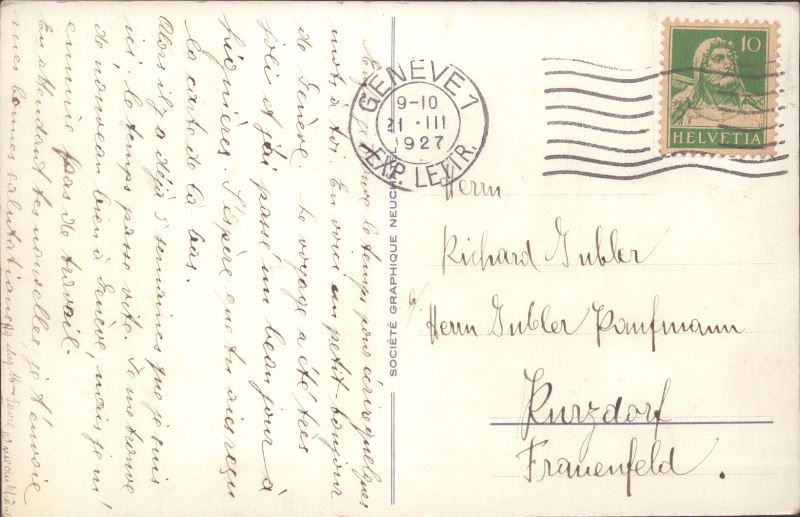 Enfin je trouve le temps pour écrire quelques
mots à toi. En vous un petit bonjour
de Genève. Le voyage a été très
joli et j'ai passé un beau jour à
. J'espère que tu aies reçu
la carte de là bas.
Alors il y a déjà 3 semaines que je suis
ici. Le temps passe vite. Je me trouve
de nouveau bien à Genève, mais je m'
ennuie pas de travail.
En attendant tes nouvelles je t'envoie
mes bonnes salutations
SOCIÉTÉ GRAPHIQUE NEUCH
GENÈVE 1
9-10
21 · III
1927
EXP. LETTR.
10
HELVETIA
Herrn
Richard Gubler
c/o Herrn Gubler Kaufmann
Kurzdorf
Frauenfeld.